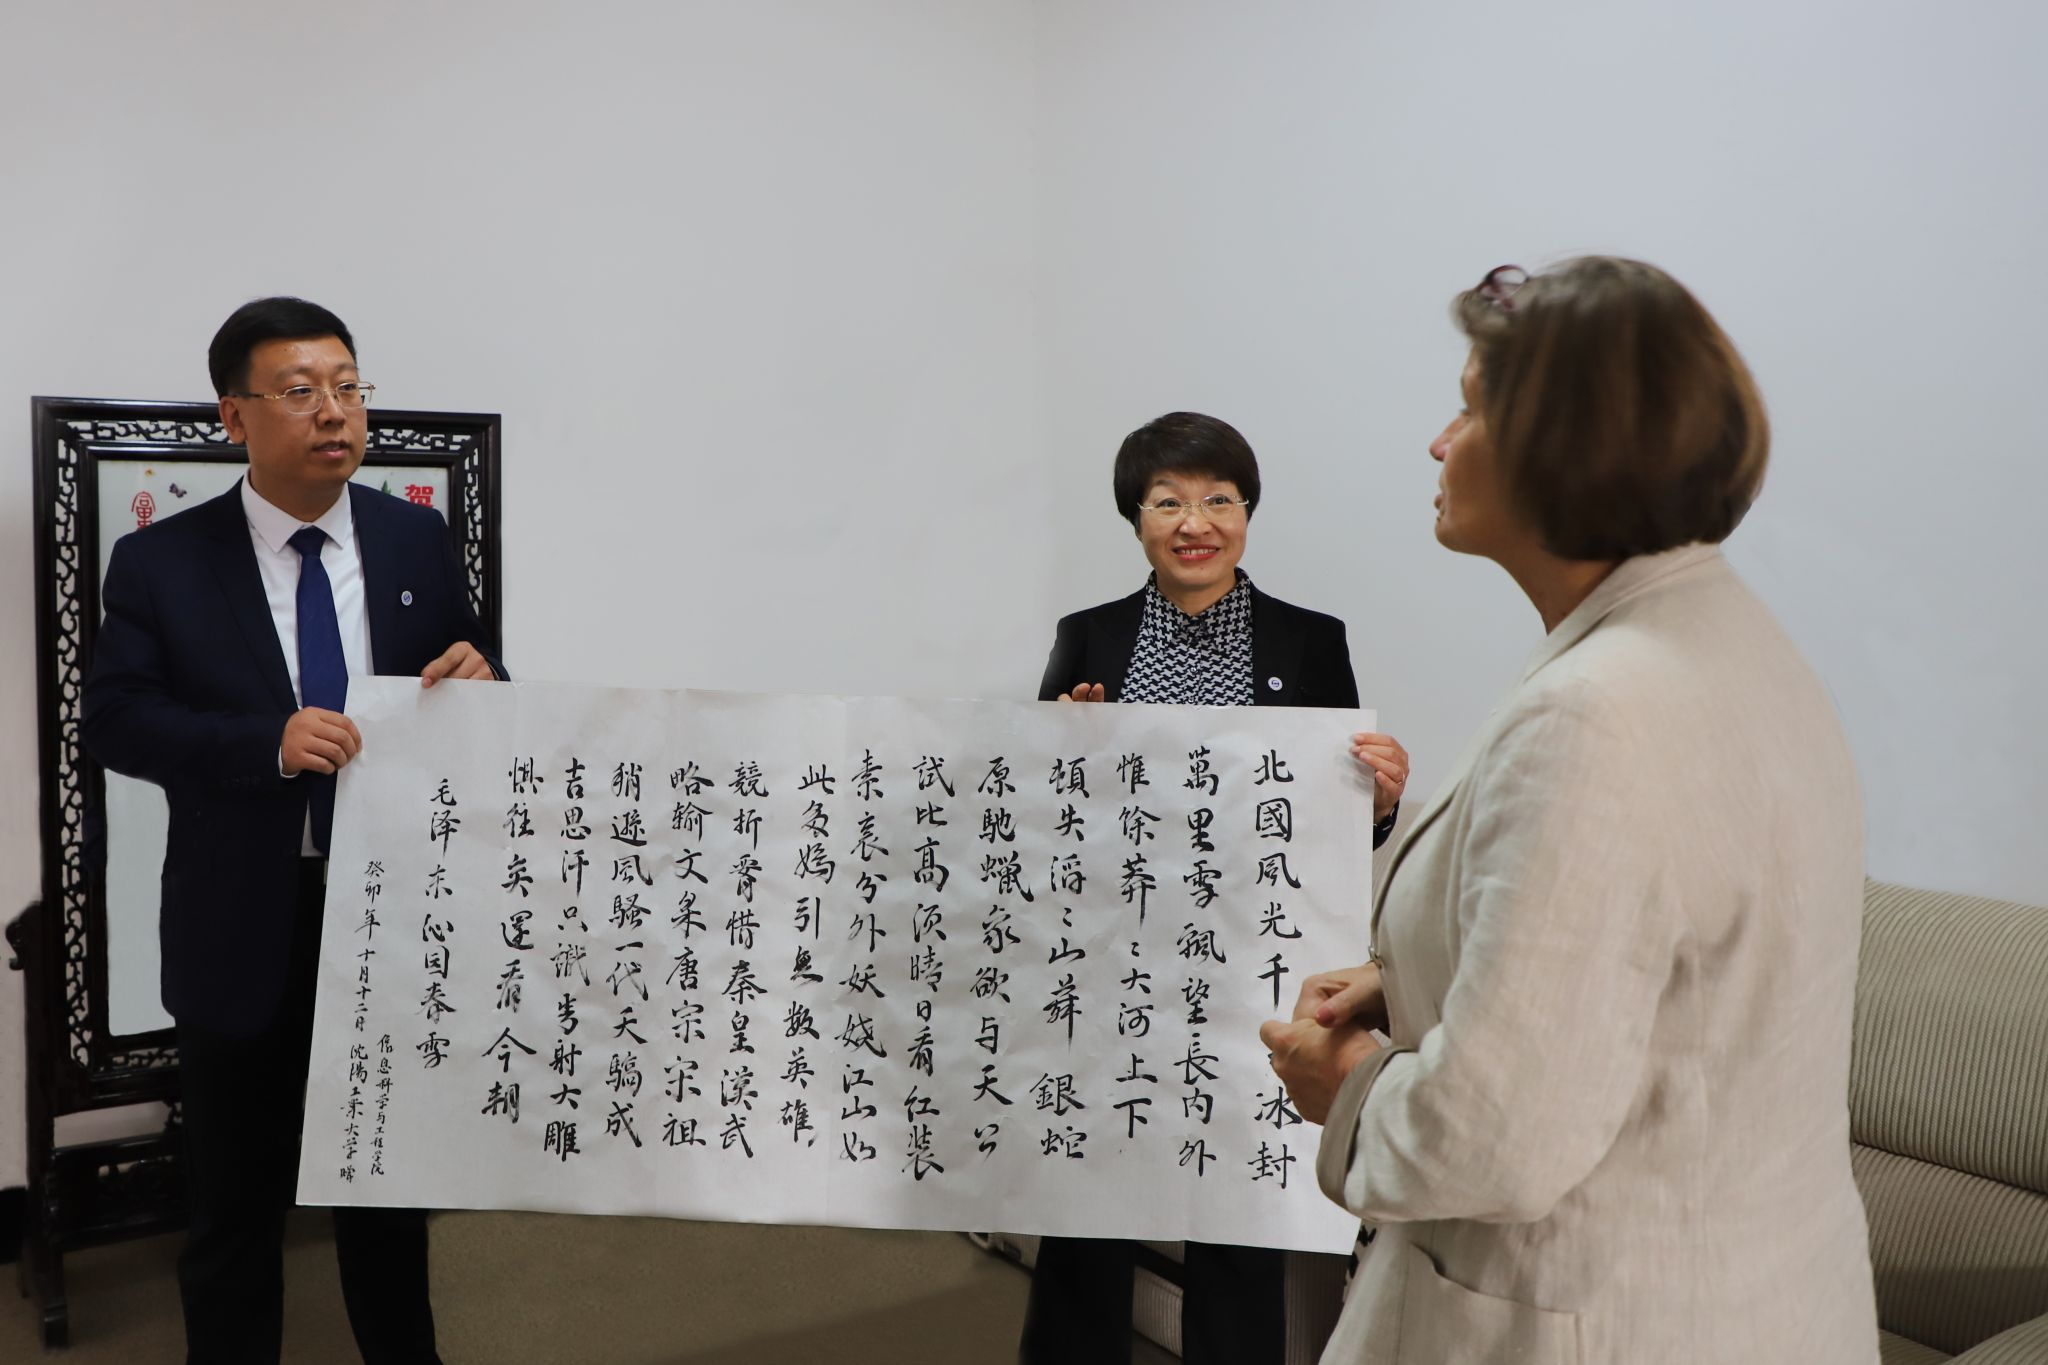 北國風光千冰封
萬里雪飄望長内外
惟餘莽〻大河上下
頓失滔〻山舞銀蛇
原馳蠟象欲与天公
試比高须晴日看红装
素裹分外妖娆江山如
此多嬌引無数英雄
競折腰惜秦皇漢武
略输文采唐宗宋祖
稍遜風騷一代天驕成
吉思汗只識彎射大雕
俱往矣還看今朝
毛泽东沁园春雪
信息科学与工程学院
癸卯年十月十二日沈陽工業大学贈
賀